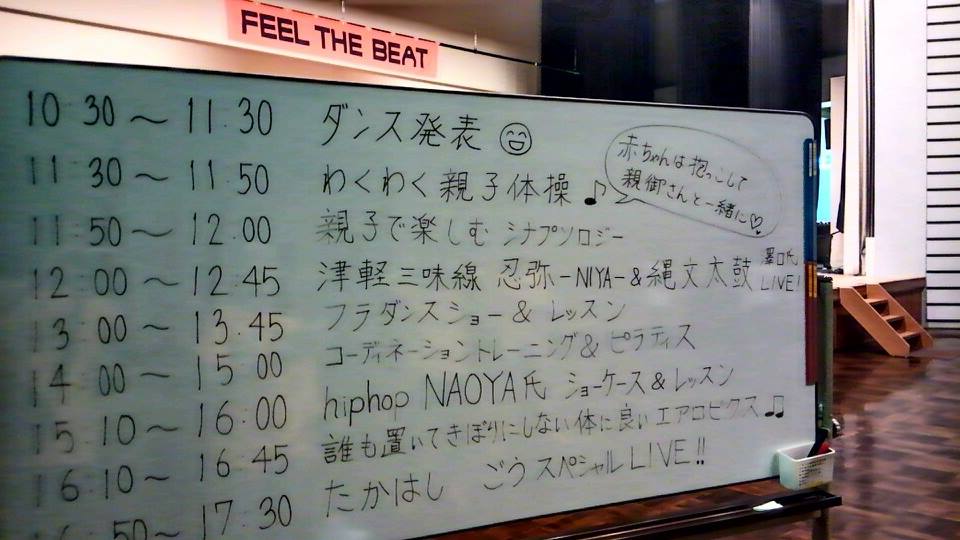 FEEL THE BEAT
10:30～11:30 ダンス発表
11:30～11:50 わくわく親子体操♪
赤ちゃんは抱っこして
親御さんと一緒に♡
11:50～12:00 親子で楽しむ シナプソロジー
12:00～12:45 津軽三味線 忍弥-NIYA-&縄文太鼓
LIVE!
13:00～13:45 フラダンスショー & レッスン
14:00～15:00 コーディネーショントレーニング& ピラティス
15:10～16:00 hiphop NAOYA氏 ショーケース&レッスン
16:10～16:45 誰も置いてきぼりにしない体に良い エアロビクス♫
16:50～17:30 たかはし ごうスペシャルLIVE!!